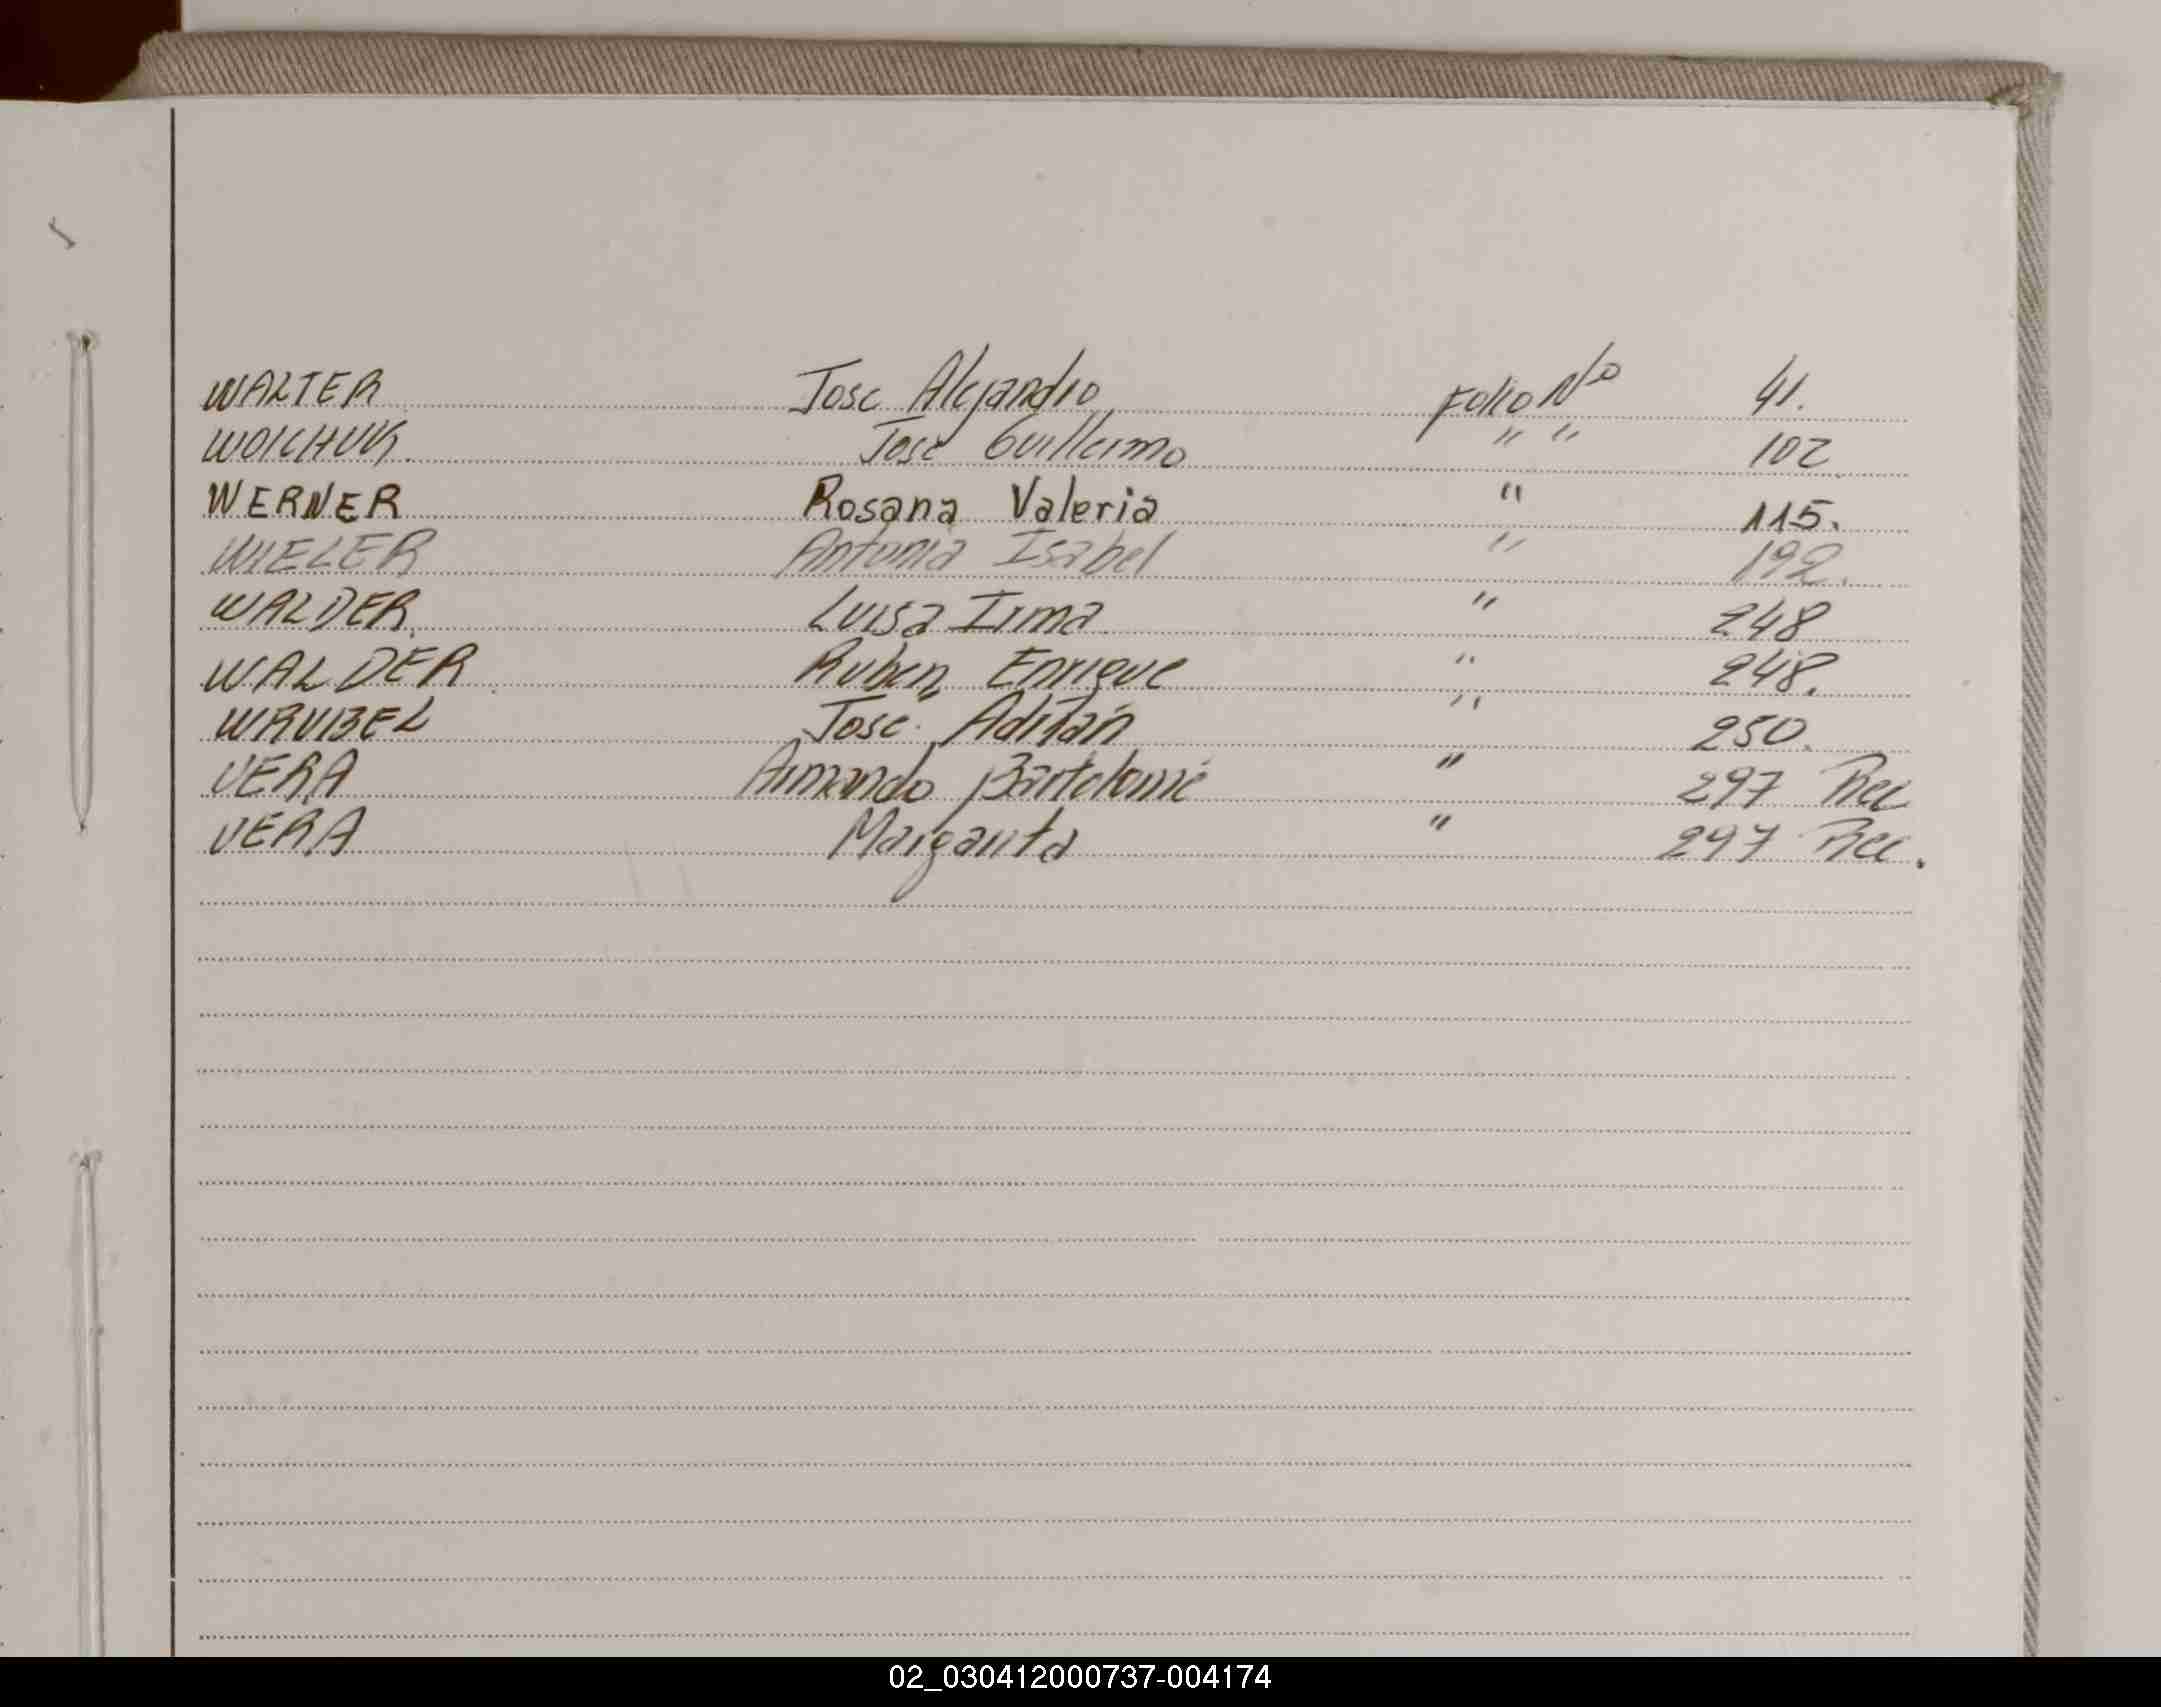 WALTER Jose Alejandro Folio Nº 41.
WOICHUK. Jose Guillermo " " 102
WERNER Rosana Valeria " 115.
WIELER Antonia Isabel " 192.
WALDER. Luisa Irma " 248
WALDER Ruben Enrique " 248.
WRUBEL Jose Adrián " 250.
VERA Armando Bartolomé " 297 Rec
VERA Margarita " 297 Rec.
02_030412000737-004174